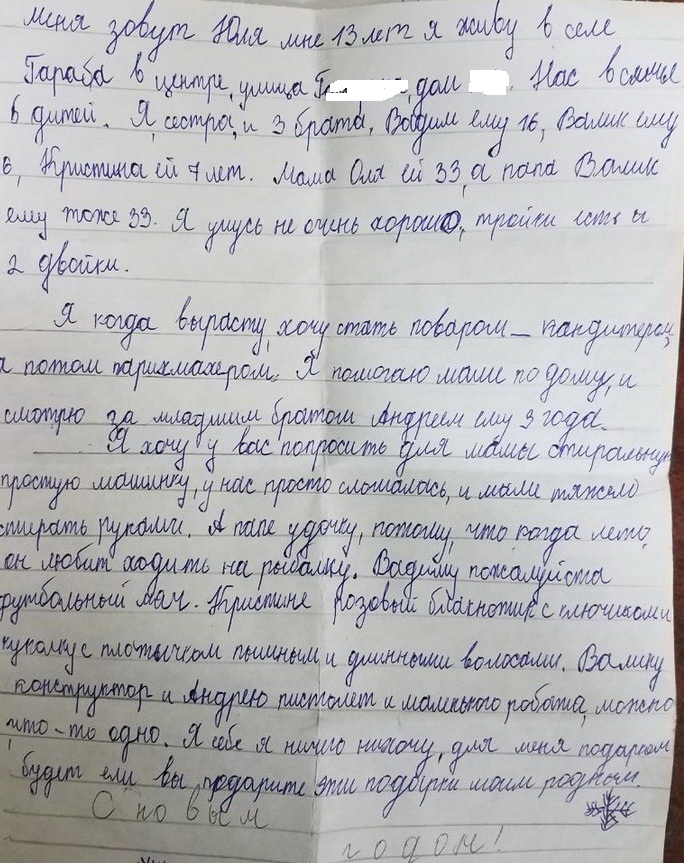 меня зовут Юля мне 13 лет я живу в селе
Гараба в центре, улица Г дом . Нас в семье
6 дитей. Я, сестра, и 3 брата, Вадим ему 16, Валик ему
6, Кристина ей 7 лет. Мама Оля ей 33, а папа Валик
ему тоже 33. Я учусь не очень хорошо, тройки есть и
2 двойки.
Я когда вырасту, хочу стать поваром – кандитером,
а потом парикмахером. Я помогаю маме по дому, и
смотрю за младшим братом Андреем ему 3 года.
Я хочу у вас попросить для мамы стиральную
простую машинку, у нас просто сломалась, и маме тяжело
стирать руками. А папе удочку, потому, что когда лето,
он любит ходить на рыбалку. Вадиму пожалуйста
футбольный мяч. Кристине розовый блакнотик с ключиком и
куколку с плотычком пышным и длинными волосами. Валику
конструктор и Андрею пистолет и маленького робота, можно
что-то одно. Я себе я ничего нихочу, для меня подарком
будет ели вы подарите эти подарки моим родным.
С новым
годом!